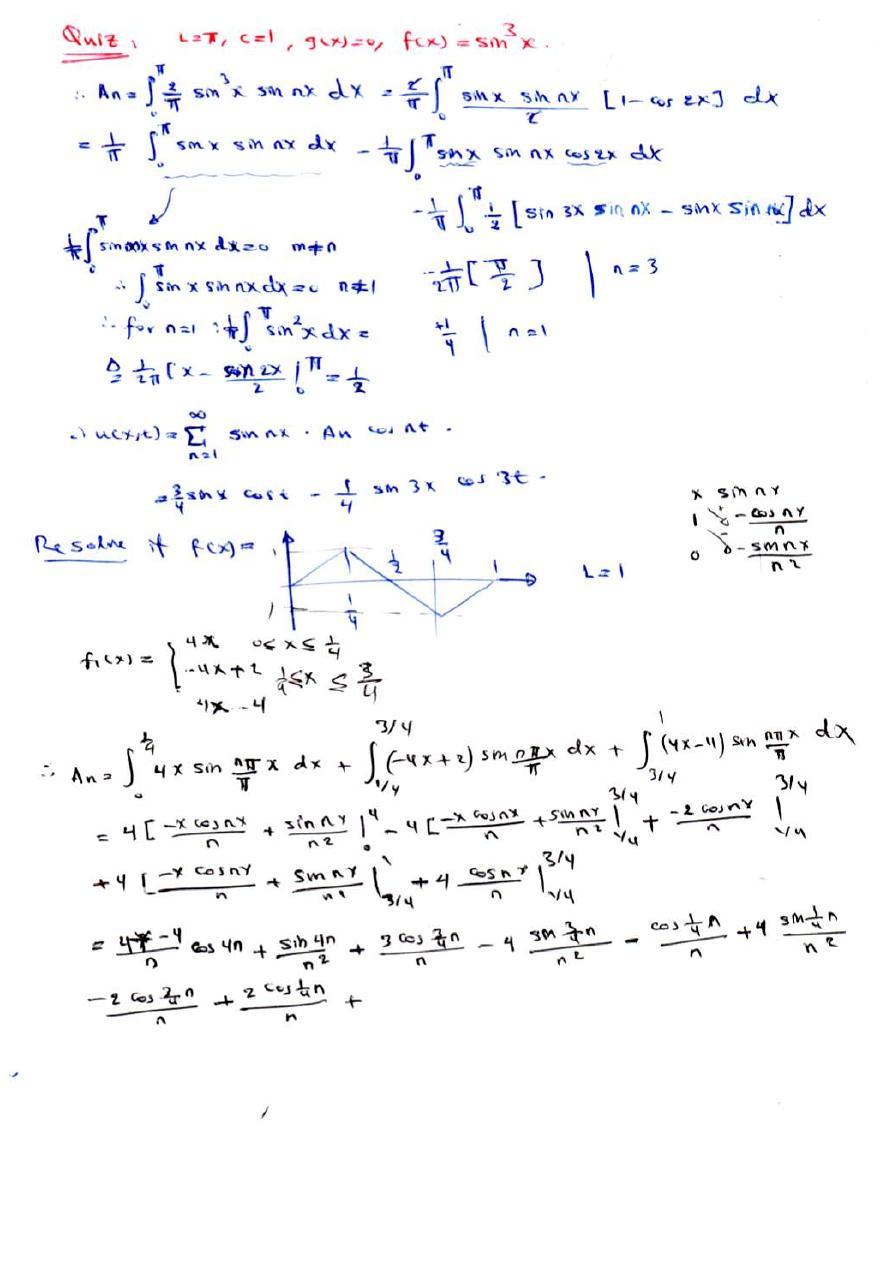 Quiz: L=π, c=1, g(x)=0, f(x) = sin³x.
∴ An = ∫₀^π 2/π sin³x sin nx dx = 2/π ∫₀^π (sin x sin nx)/2 [1 - cos 2x] dx
= 1/π ∫₀^π sin x sin nx dx - 1/π ∫₀^π sin x sin nx cos 2x dx
-1/π ∫₀^π 1/2 [sin 3x sin nx - sin x sin nx] dx
1/π ∫₀^π sin mx sin nx dx = 0 m≠n
-1/2π [π/2] | n=3
∴ ∫₀^π sin x sin nx dx = 0 n≠1
∴ for n=1 : 1/π ∫₀^π sin²x dx =
+1/4 | n=1
1/2π [x - sin 2x/2 |₀^π = 1/2
∴ u(x,t) = Σ_{n=1}^∞ sin nx · An cos nt.
= 3/4 sin x cos t - 1/4 sin 3x cos 3t.
x sin nx
1 -cos nx/n
0 -sin nx/n²
Resolve if f(x) = 1 1/4 1/2 3/4 1 L=1
f1(x) = { 4x 0≤x≤1/4
-4x+2 1/4≤x≤3/4
4x-4
∴ An = ∫₀^{1/4} 4x sin nπ/π x dx + ∫_{1/4}^{3/4} (-4x+2) sin nπx/π dx + ∫_{3/4}^1 (4x-4) sin nπx/π dx
= 4[-x cos nx/n + sin nx/n² |₀^4 - 4[-x cos nx/n + sin nx/n² |_{1/4}^{3/4} + -2 cos nx/n |_{1/4}^{3/4}
+4 [-x cos nx/n + sin nx/n² |_{3/4}^1 + 4 cos nx/n |_{1/4}^{3/4}
= -4/n cos 4n + sin 4n/n² + 3 cos 3/4 n/n - 4 sin 3/4 n/n² - cos 1/4 n/n + 4 sin 1/4 n/n²
-2 cos 3/4 n/n + 2 cos 1/4 n/n +